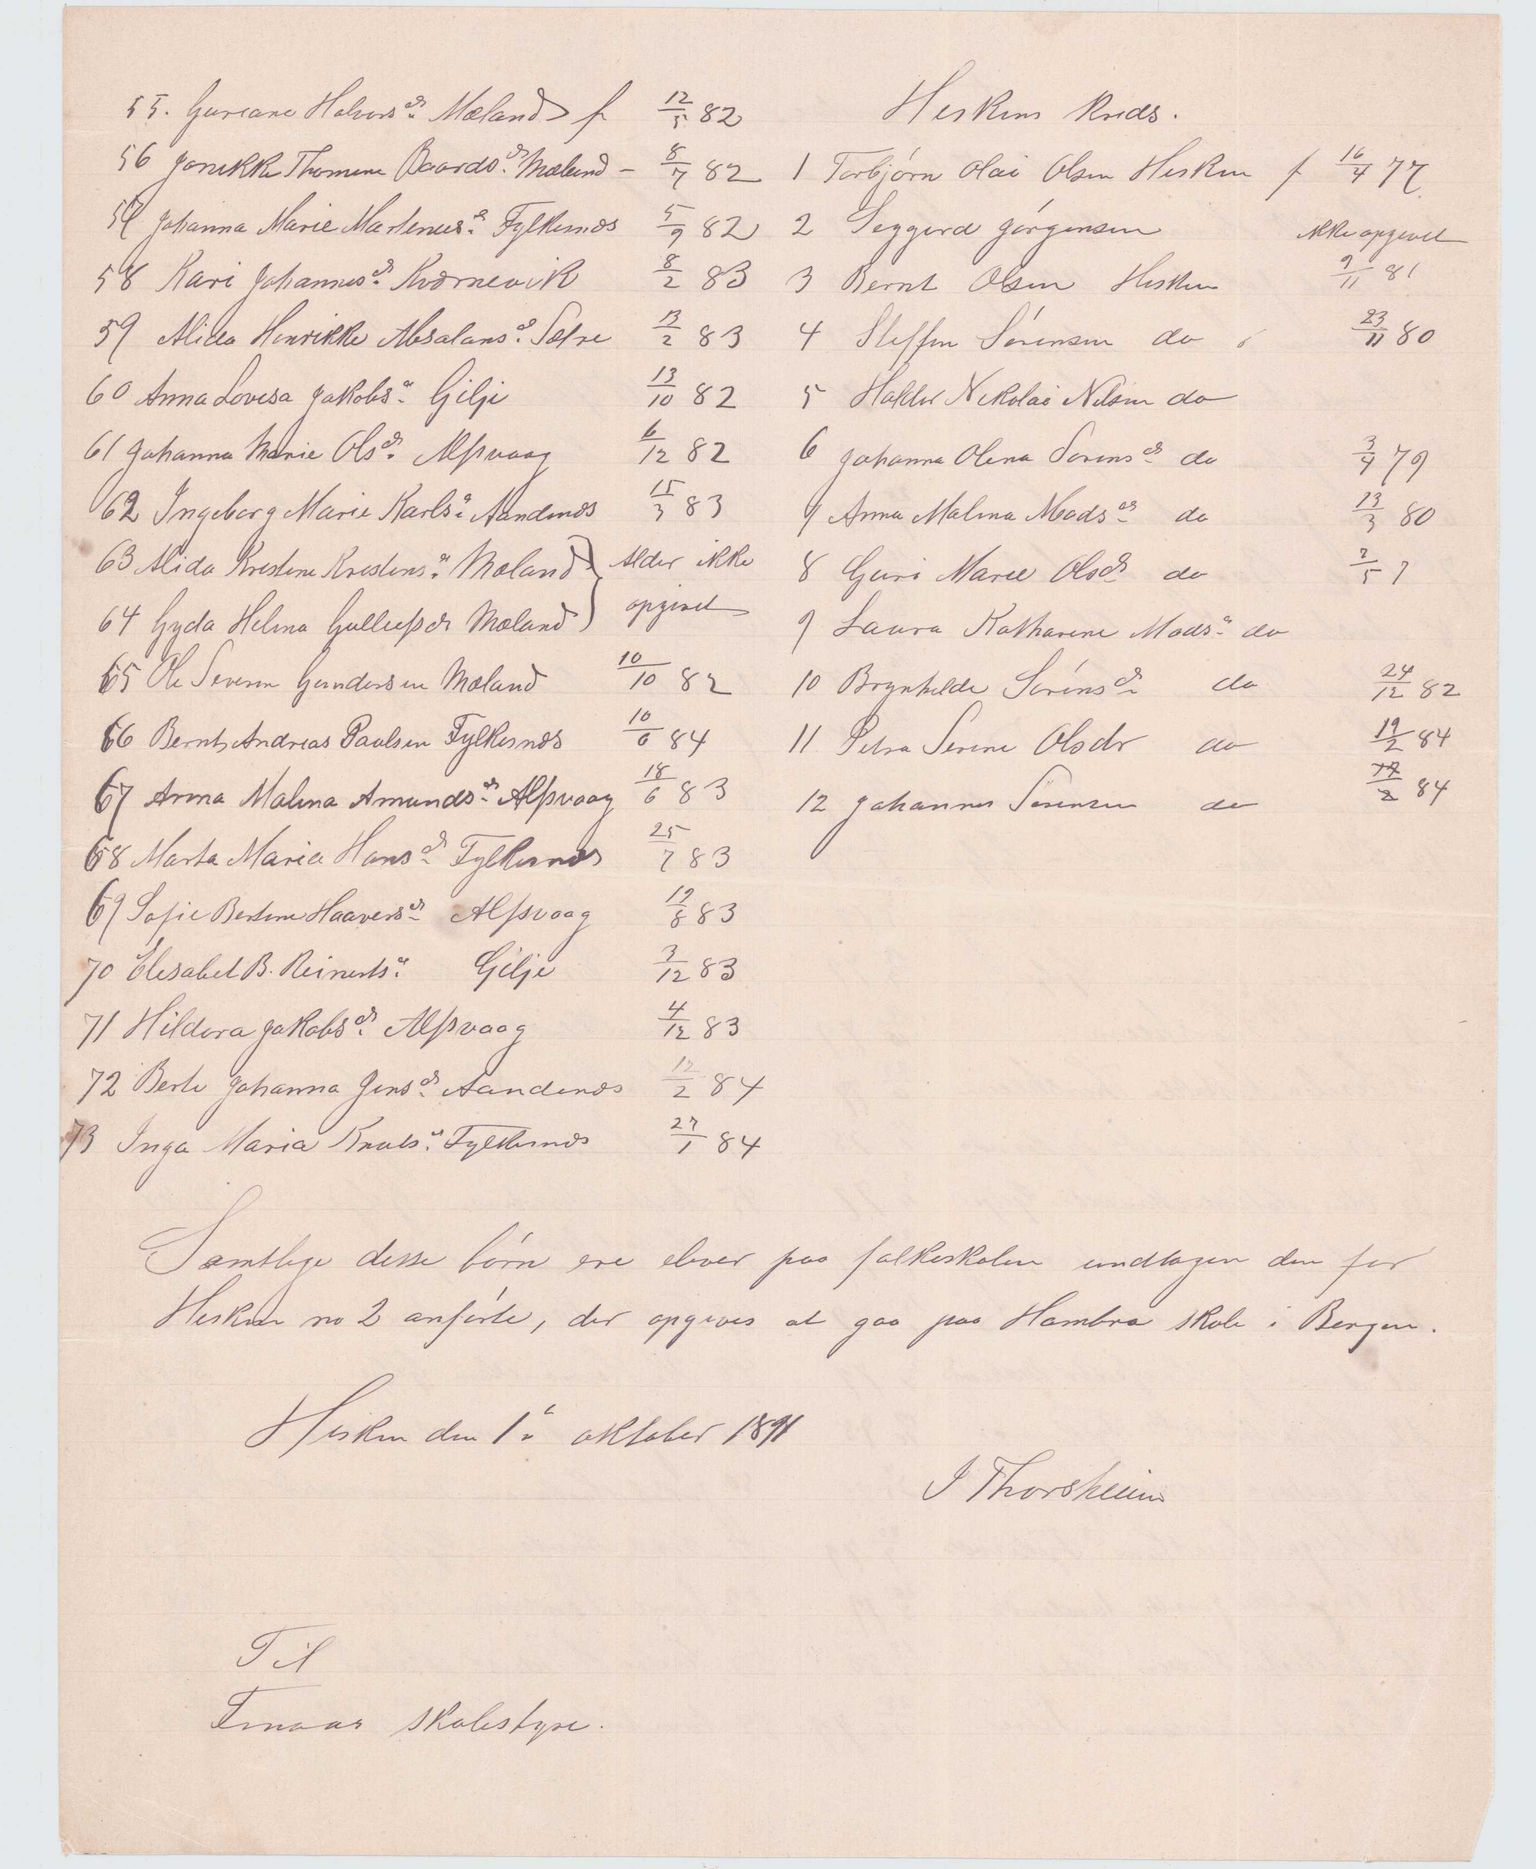 55. Guriane Halvors dr Mæland f 12/5 82
56 Jonikke Thomine Baards dr Mæland - 8/7 82
57 Johanna Marie Martenus dr Fylkesnæs 5/9 82
58 Kari Johannes dr Kværnevik 8/2 83
59 Alida Henrikke Absalons dr Sætre 13/2 83
60 Anna Lovisa Jakobs dr Gilje 13/10 82
61 Johanna Marie Ols dr Alfsvaag 6/12 82
62 Ingeborg Marie Karls dr Aandenæs 15/3 83
63 Alida Kristine Kristens dr Mæland } Alder ikke
64 Gyda Helina Gulleifs dr Mæland } opgivet
65 Ole Severin Gundersen Mæland 10/10 82
66 Bernt Andreas Paulsen Fylkesnæs 10/6 84
67 Anna Malina Amunds dr Alfsvaag 18/6 83
68 Marta Maria Hans dr Fylkesnæs 25/7 83
69 Sofie Bertine Haavers dr Alfsvaag 12/8 83
70 Elisabet B. Reinerts dr Gilje 3/12 83
71 Hildora Jakobs dr Alfsvaag 4/12 83
72 Berte Johanna Jens dr Aandenæs 12/2 84
73 Inga Maria Knuts dr Fylkesnæs 27/1 84
Heskens Kreds.
1 Torbjørn Olai Olsen Hesken f 16/4 77
2 Seggerd Jørgensen ikke opgivet
3 Bernt Olsen Hesken 9/11 81
4 Steffen Sørensen do 23/11 80
5 Haldor Nikolai Nilsen do
6 Johanna Olena Sørens dr do 3/4 79
7 Anna Malina Mads dr do 13/3 80
8 Guri Marie Olsdr do
9 Laura Katharine Mads dr do
10 Brynhilde Sørens dr do 24/12 82
11 Petra Serine Olsdr do 19/2 84
12 Johannes Sørensen do 84
Samtlige disse børn ere elever paa folkeskolen undtagen den for
Hesken no 2 anførte, der opgives at gaa paa Hambro skole i Bergen.
Hesken den 1. oktober 1891
J Thorsheim
Til
Finaas skolestyre.